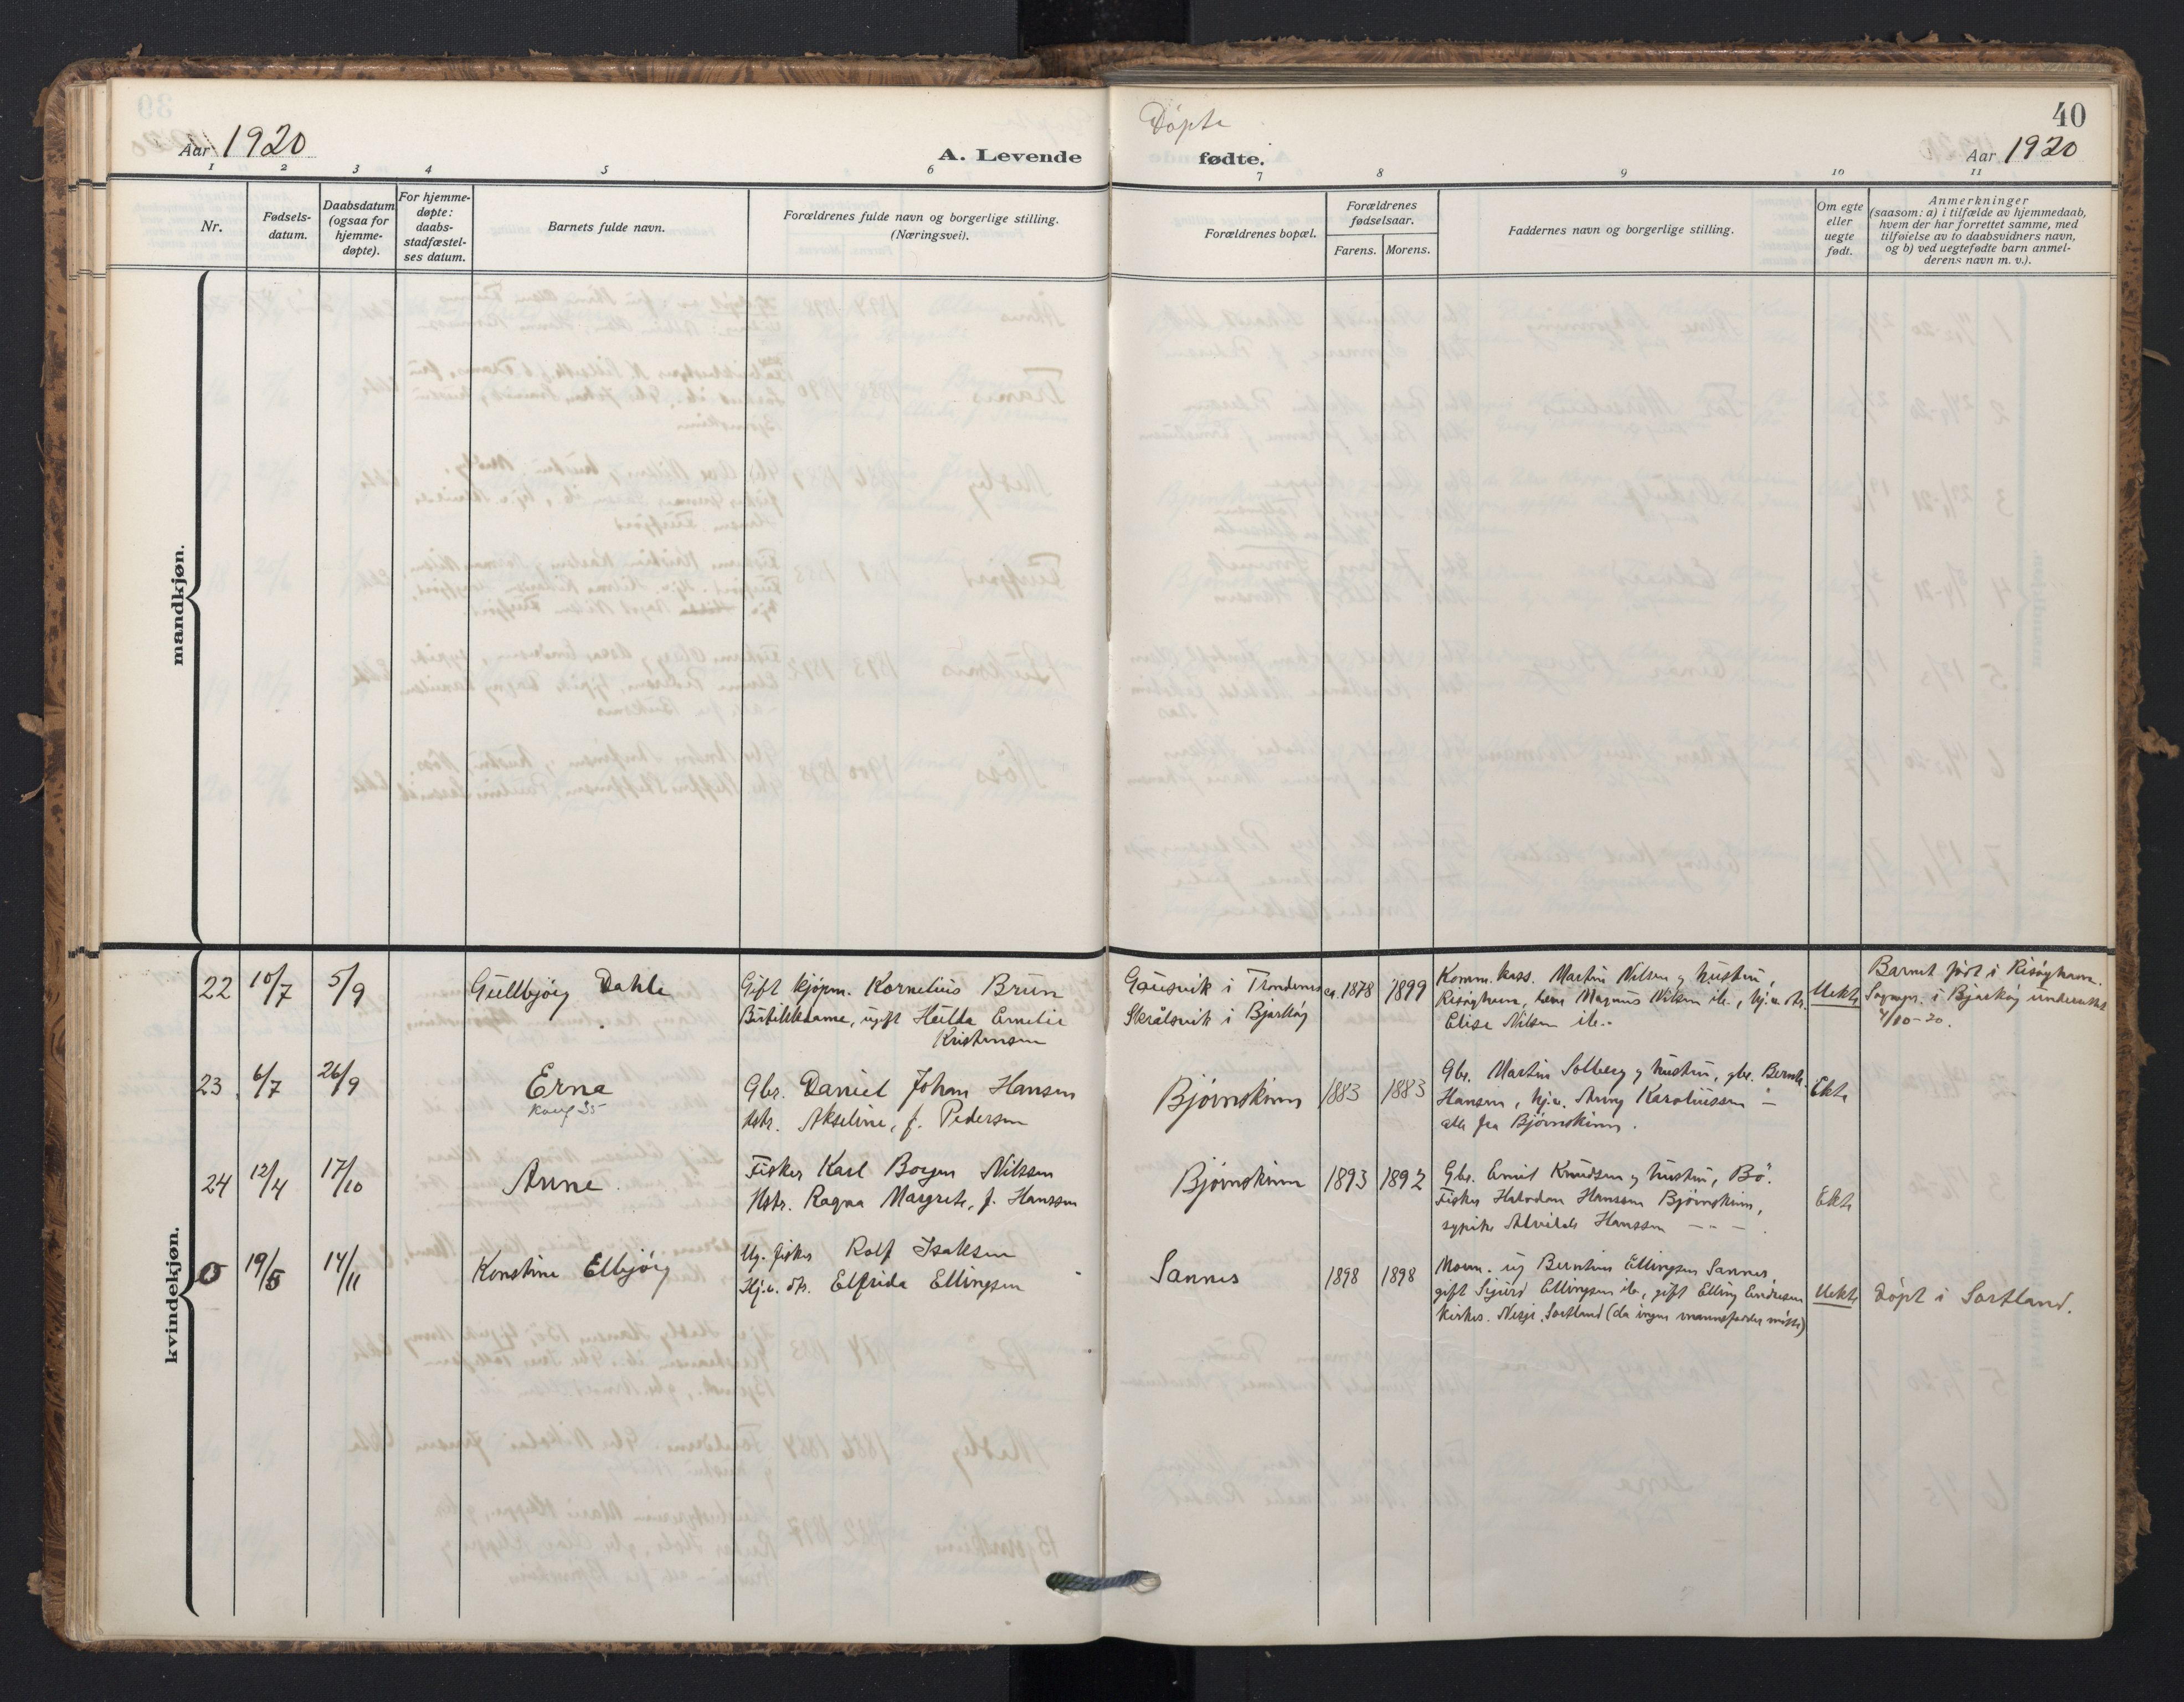 Aar 1920
A. Levende
Døpte
fødte.
40
Aar 1920
1 2 3 4 5 6 7 8 9 10 11
Nr.
Fødsels-
datum.
Daabsdatum
(ogsaa for
hjemme-
døpte).
For hjemme-
døpte:
daabs-
stadfæstel-
ses datum.
Barnets fulde navn.
Forældrenes fulde navn og borgerlige stilling.
(Næringsvei).
Forældrenes bopæl.
Forældrenes
fødselsaar.
Farens. Morens.
Faddernes navn og borgerlige stilling.
Om egte
eller
uegte
født.
Anmerkninger
(saasom: a) i tilfælde av hjemmedaab,
hvem der har forrettet samme, med
tilføielse av to daabsvidners navn,
og b) ved uegtefødte barn anmel-
derens navn m. v.).
mandkjøn.
kvindekjøn.
22 10/7 5/9
Gullbjørg Dahle
Gift kjøpm. Kornelius Brun
ugift Hulda Emelie
Kristensen
Gausvik i Trondenes
Skrålsvik i Bjarkøy
ca. 1878 1899
Komm. kass. Martin Nilsen og hustru,
Risøyhamn, Magnus Nilsen ib., hj.v. dtr.
Elise Nilsen ib.
Uekte
Barnet født i Risøyhamn.
Sognepr. i Bjarkøy underrettet
4/10-20.
23 6/7 26/9
Erna
Konf 35
Gbr. Daniel Johan Hansen
Hstr. Akseline, f. Pedersen
Bjørnskinn
1883 1883
Gbr. Martin Solberg og hustru, gbr. Bernh.
Hansen, hj.v. Karoliussen –
alle fra Bjørnskinn.
Ekte
24 12/4 17/10
Anne
Fisker Karl Borgen Nilssen
Hstr. Ragna Margrete, f. Hanssen
Bjørnskinn
1893 1892
Gbr. Emil Knudsen og hustru, Bø.
Fisker Halvdan Hanssen Bjørnskinn,
sypike Alvilde Hanssen – – –.
Ekte
0 19/5 14/11
Konstine Elbjørg
Ug. fisker Rolf Isaksen
Hj.v. dtr. Elfrida Ellingsen
Sannes
1898 1898
Mom. ug Berntine Ellingsen Sannes,
gift Sigurd Ellingsen ib., gift Elling Endresen
kirkes. Sortland (da ingen mannsfadder møtte)
Uekte
Døpt i Sortland.